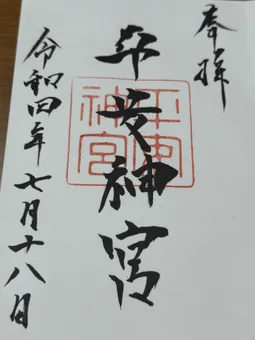 奉拝
平安神宮
平安神宮
令和四年七月十八日